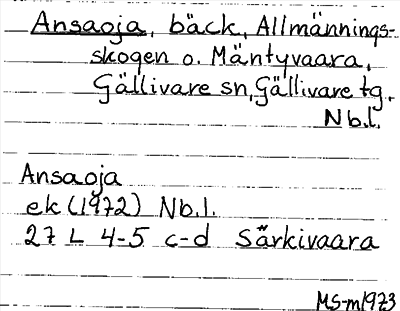 Ansaoja, bäck, Allmännings-
skogen o. Mäntyvaara,
Gällivare sn, Gällivare tg.
Nb.l.
Ansaoja
ek (1972) Nb.l.
27 L 4-5 c-d Särkivaara
MS-m1973